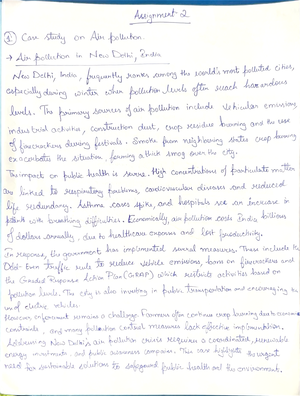 Assignment 2
1) Case study on Air pollution.
→ Air pollution in New Delhi, India
New Delhi, India, frequently ranks among the world's most polluted cities,
especially during winter when pollution levels often reach hazardous
levels. The primary sources of air pollution include vehicular emissions,
industrial activities, construction dust, crop residue burning and the use
of firecrackers during festivals. Smoke from neighbouring states crop burning
exacerbates the situation, forming a thick smog over the city.
The impact on public health is severe. High concentrations of particulate matter
are linked to respiratory problems, cardiovascular diseases and reduced
life. Asthma cases spike, and hospitals see an increase in
patients with breathing difficulties. Economically, air pollution costs India billions
of dollars annually, due to healthcare expenses and lost productivity.
In response, the government has implemented several measures. These include the
Odd-Even traffic rule to reduce vehicle emissions, bans on firecrackers and
the Graded Response Action Plan (GRAP) which restricts activities based on
pollution levels. The city is also investing in public transportation and encouraging the
use of electric vehicles.
However, enforcement remains a challenge. Farmers often continue crop burning due to economic
constraints, and many pollution control measures lack effective implementation.
Addressing New Delhi's air pollution crisis requires a coordinated, renewable
energy investments, and public awareness campaigns. This case highlights the urgent
need for sustainable solutions to safeguard public health and the environment.